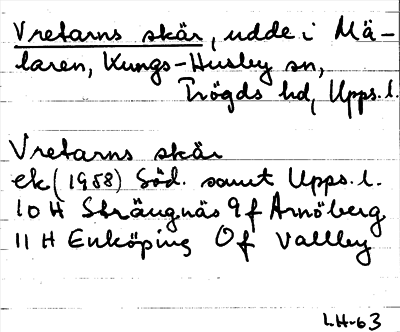 Vretarns skär, udde i Mä-
laren, Kungs-Husby sn,
Trögds hd, Upps. l.
Vretarns skär
ek (1958) Söd. samt Upps. l.
10 H Strängnäs 9 f Arnöberg
11 H Enköping 0 f Vallby
LH-63